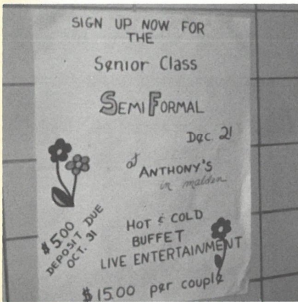 SIGN UP NOW FOR
THE
Senior Class
SEMI FORMAL
Dec. 21
at ANTHONY'S
in malden
$5.00
DEPOSIT DUE
OCT. 31
HOT & COLD
BUFFET
LIVE ENTERTAINMENT
$15.00 per couple